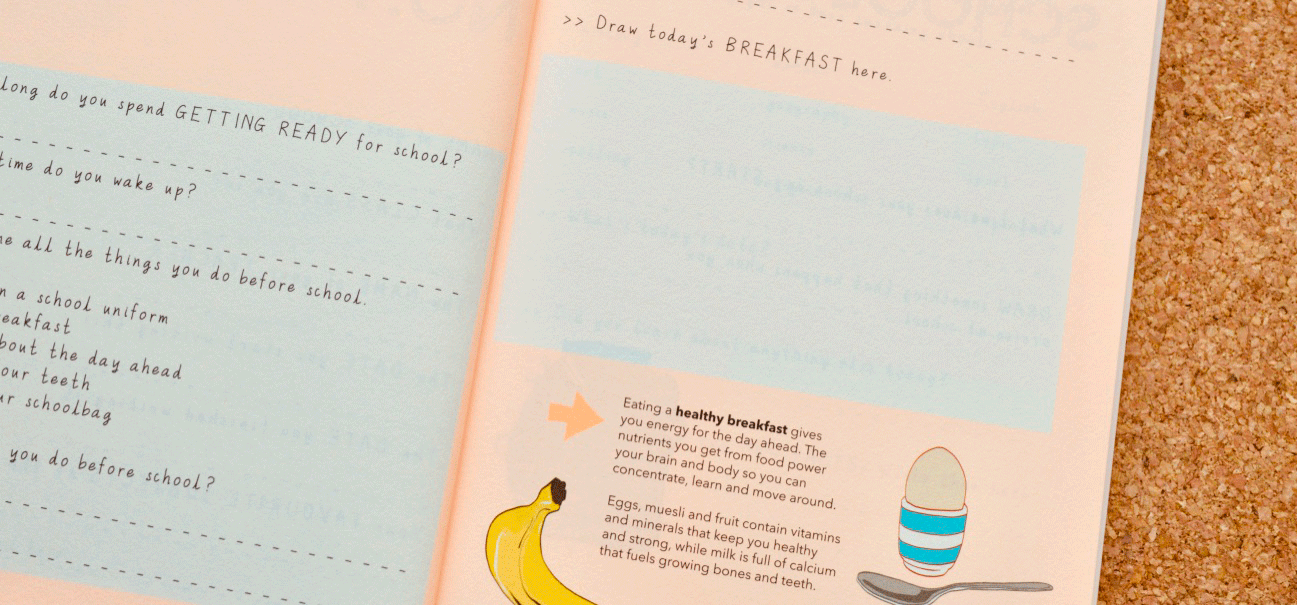 long do you spend GETTING READY for school?
time do you wake up?
all the things you do before school.
n a school uniform
reakfast
bout the day ahead
our teeth
ur schoolbag
you do before school?
>> Draw today's BREAKFAST here.
Eating a healthy breakfast gives
you energy for the day ahead. The
nutrients you get from food power
your brain and body so you can
concentrate, learn and move around.
Eggs, muesli and fruit contain vitamins
and minerals that keep you healthy
and strong, while milk is full of calcium
that fuels growing bones and teeth.